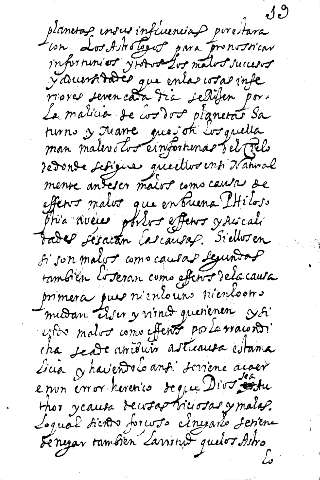 19
planetas en sus influencias por estara
con Los Astrologos para pronosticar
infortunios y todos Los malos sucesos
y adversidades que en las cosas infe
riores se ven cada dia se Rijen por
La malicia de los dos planetas Sa
turno y Marte que son Los que lla
man malevolos e infortunas del Cielo
de donde se sigue que ellos en si Natural
mente an de ser malos como causa de
efetos malos que en buena Philoso
phia por los efetos y sus cali
dades se sacan Las causas. Si ellos en
si son malos como causas segundas
tambien lo seran como efetos de la causa
primera pues ni en lo uno ni en lo otro
mudan el ser y virtud que tienen y si
ellos malos como efetos por la rracon di
cha se a de atribuir a su causa esta ma
licia y haciendolo ansi se viene a caer
en un error heretico de que Dios sea Au
thor y causa de cosas viciosas y malas.
Lo qual siendo forcoso el negarlo se viene
de negar tambien La virtud que los Astro
lo